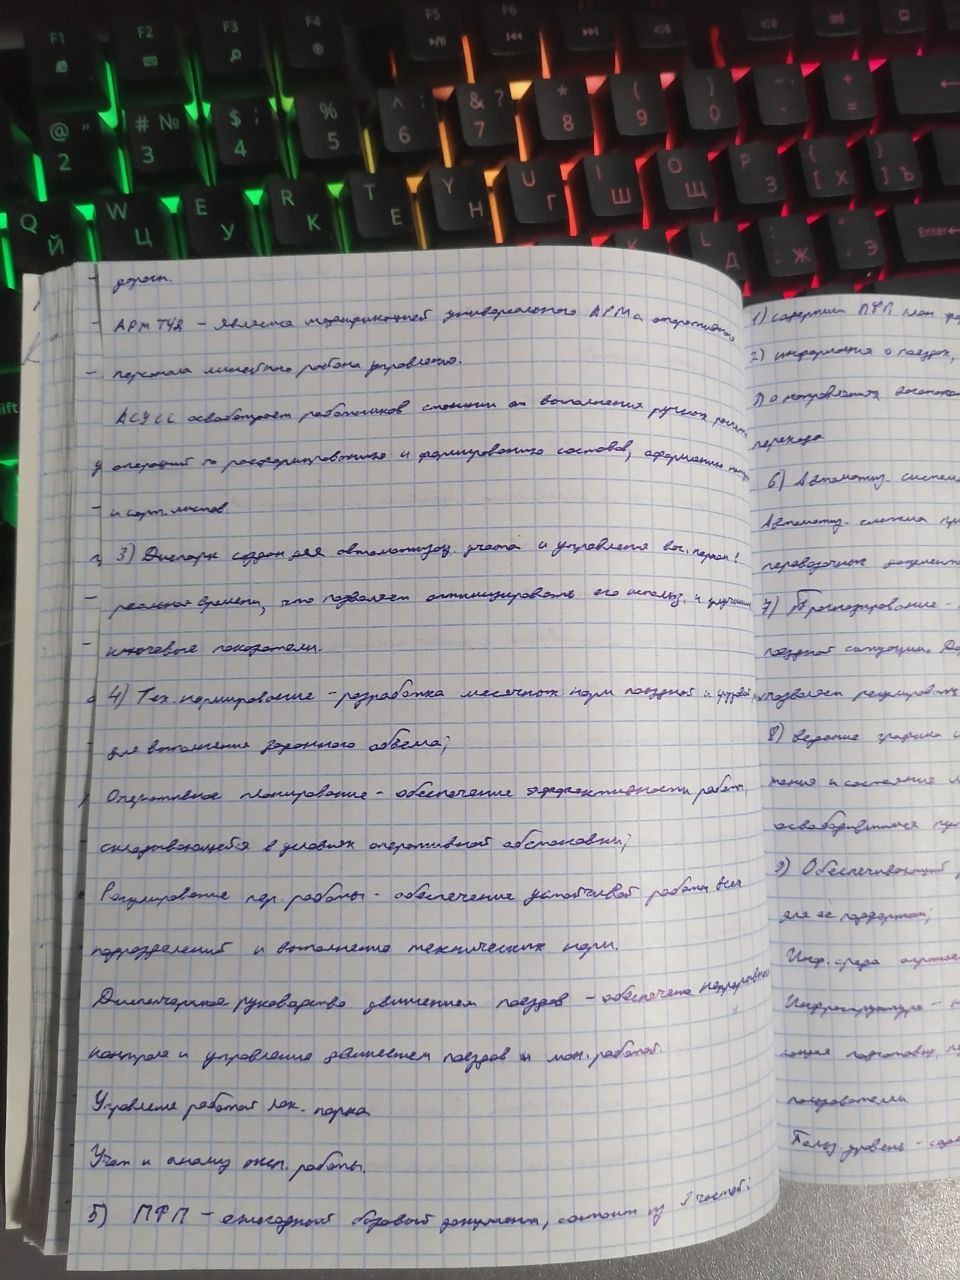 F1 F2 F3 F4 F5 F6 F7
@ " 2 # № 3 $ ; 4 % 5 ^ : 6 & ? 7 * 8 ( 9 ) 0 - + =
Q Й W Ц E У R К T Е Y Н U Г I Ш O Щ P З { [ Х } ] Ъ
K L Д : ; Ж " ' Э Enter
ift
дороги.
АРМ ТЧД – является модификацией универсального АРМа оперативного
персонала линейного района управления.
АСУ СС освобождает работников станции от выполнения ручных
операций по расформированию и формированию составов, оформлению
и сорт. листов
3) Диспарк создан для автоматизац. учёта и управления ваг. парком
реального времени, что позволяет оптимизировать его использ. и улучшить
ключевые показатели.
4) Тех. нормирование – разработка месячных норм поездной и грузовой
для выполнение заданного объёма;
Оперативное планирование – обеспечение эффективности работы,
складывающейся в условиях оперативной обстановки;
Регулирование пер. работы – обеспечение устойчивой работы всех
подразделений и выполнение технических норм.
Диспетчерское руководство движением поездов – обеспечение непрерывного
контроля и управление движением поездов и ман. работой.
Управление работой лок. парка
Учёт и анализ эксп. работы.
5) ПФП – ежегодный базовый документ, состоит из 3 частей:
1) содержит ПФП план
2) информация о поездах,
3) о направлениях
перехода
6) Автоматиз. система
Автоматиз. система
перевозочных документов
7) Прогнозирование –
поездной ситуации.
позволяет регулировать
8) ведение графика
жения и состояние
освободившимся
9) Обеспечивающий
для её поддержки;
Инф. среда
Инфраструктура –
ющее подготовку,
пользователи
Польз. уровень –